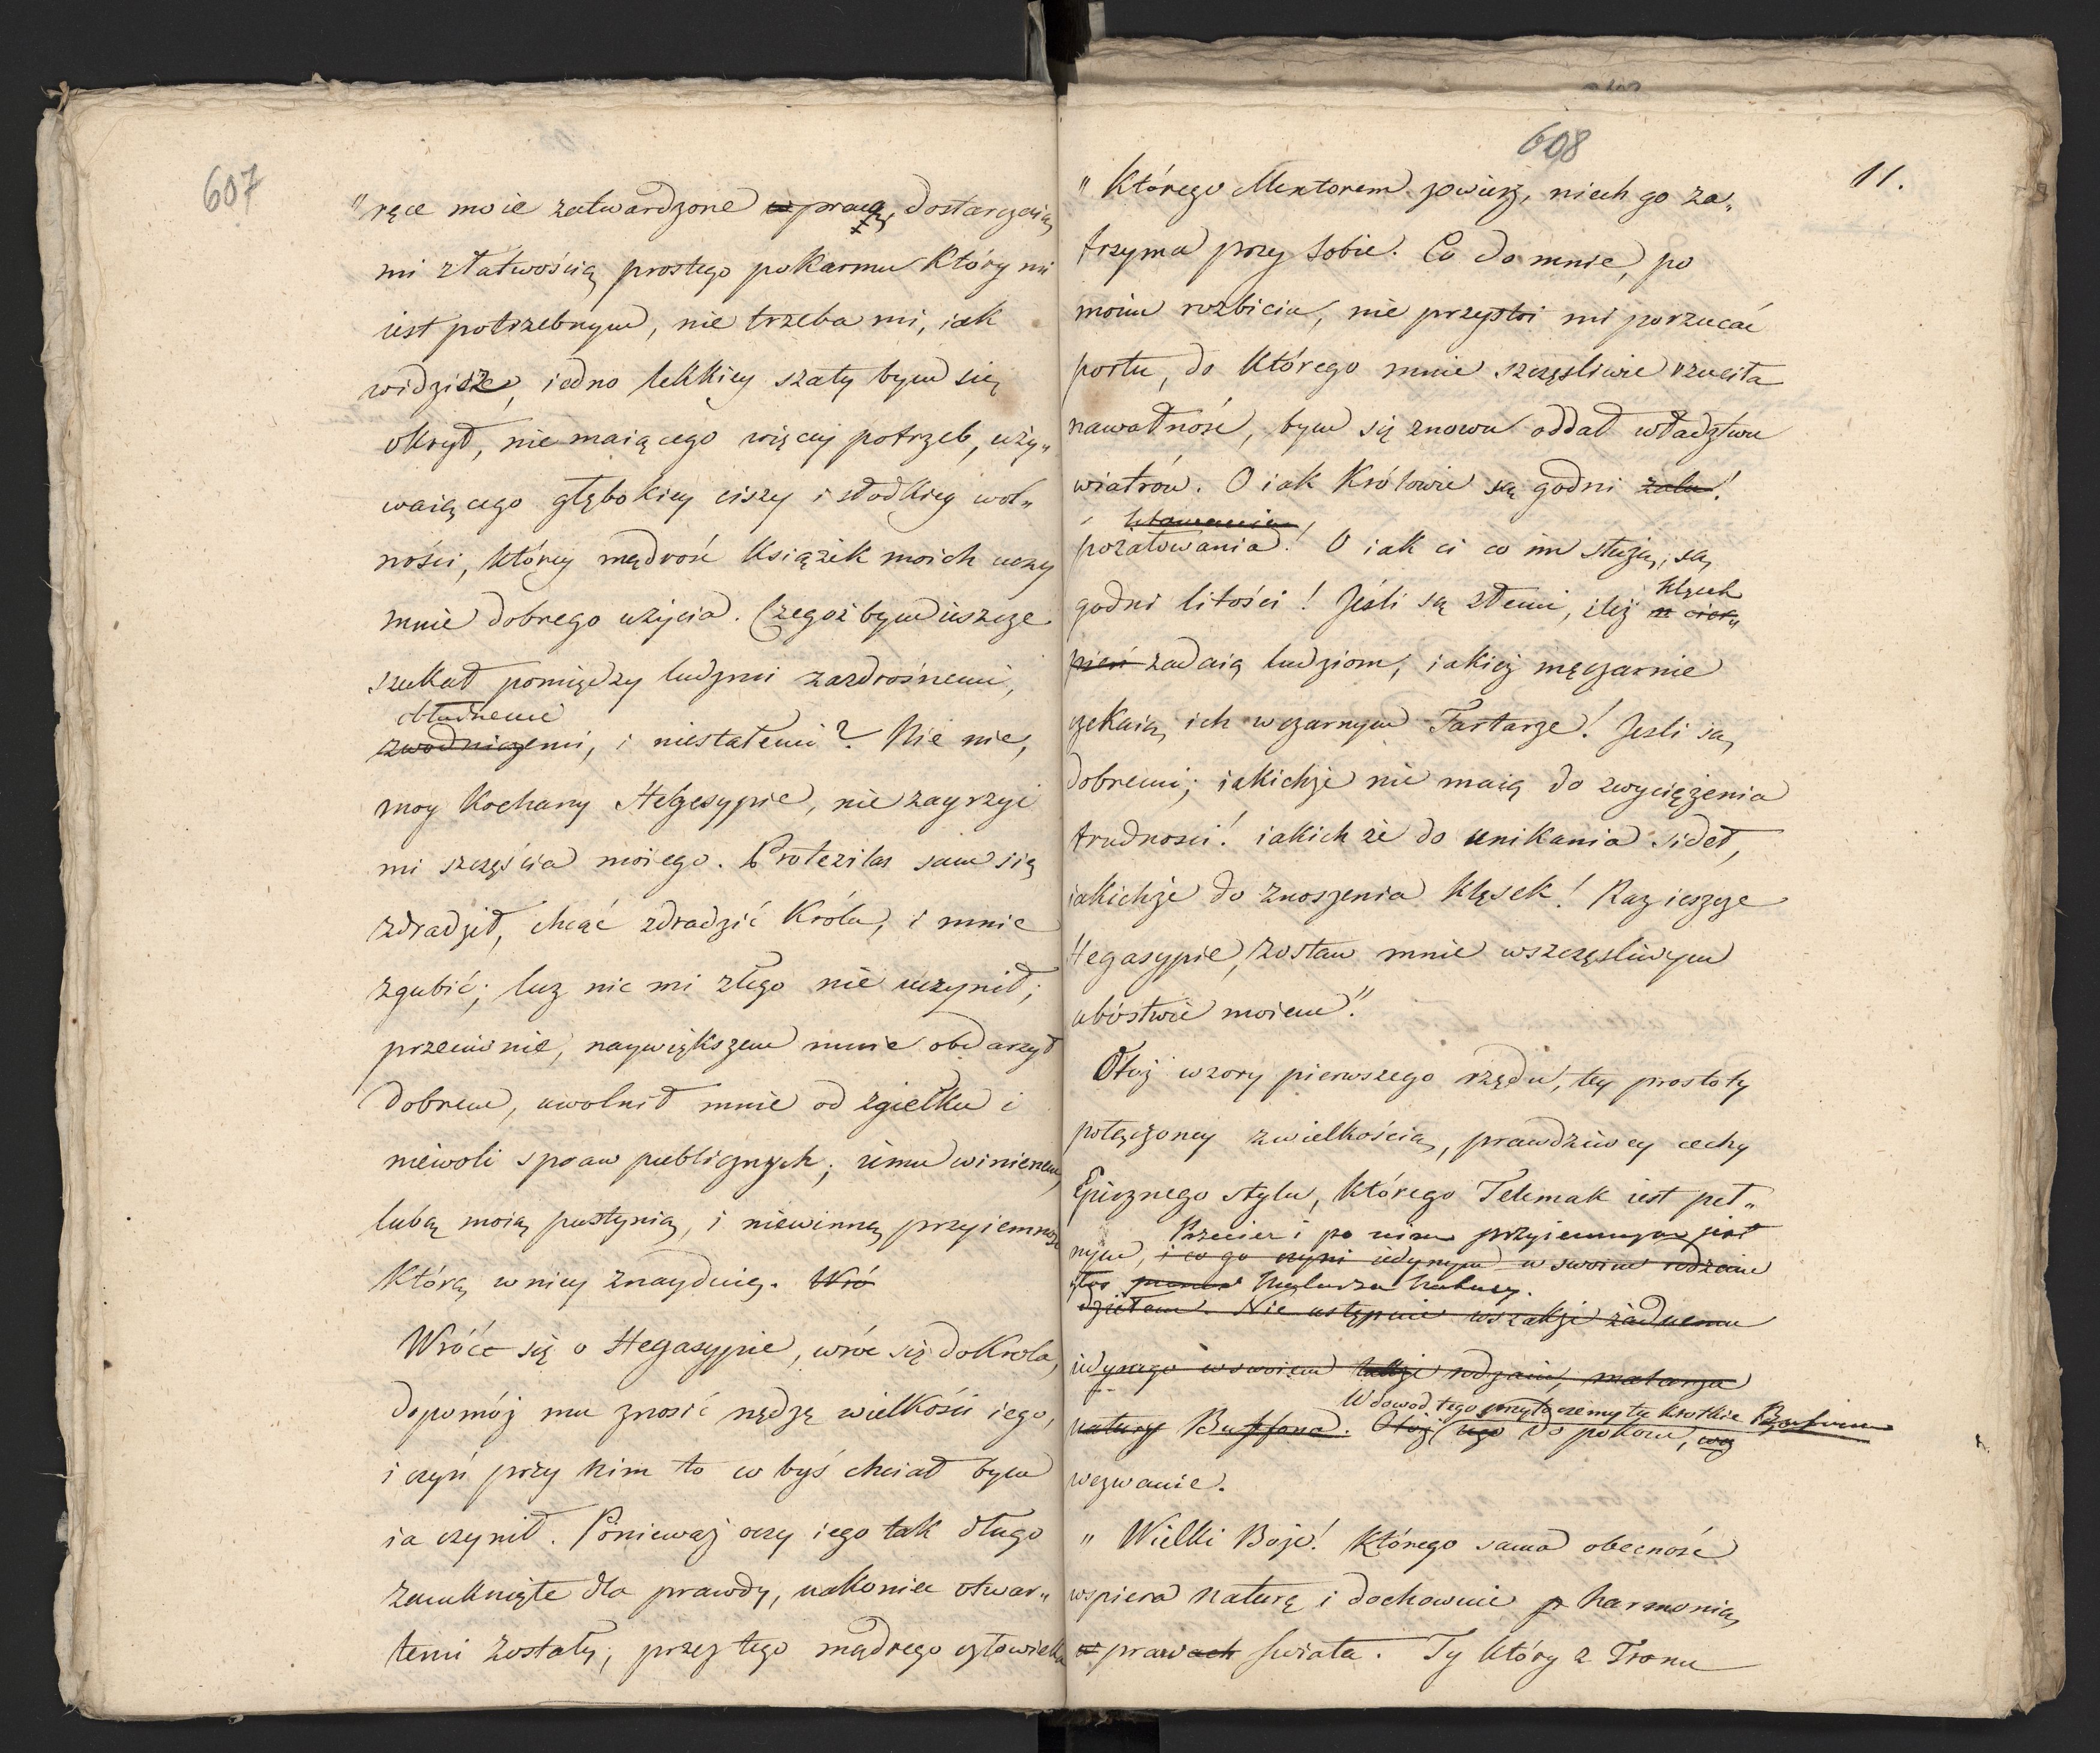 607
„ręce moie zatwardzone w pracą, dostarczaią
mi złatwością prostego pokarmu który mi
iest potrzebnym, nie trzeba mi, iak
widzisz, iedno lekkiey szaty bym się
okrył, nie maiącego więcey potrzeb, uży„
waiącego głębokiey ciszy i słodkiey wol„
ności, którey mądrość Książek moich uczy
mnie dobrego użycia. Czegoż bym ieszcze
szukał pomiędzy ludzmi zazdrośnemi,
obłudnemi
zwodniczemi, i niestałemi? Nie nie,
moy kochany Hegesyppie, nie zayrzyi
mi szczęścia moiego. Protezilas sam się
zdradził, chcąc zdradzić Króla, i mnie
zgubić; lecz nic mi złego nie uczynił;
przeciwnie, naywiększem mnie obdarzył
dobrem, uwolnił mnie od zgiełku i
niewoli spraw publicznych; iemu winienem
lubą moią pustynią, i niewinną przyiemność
którą w niey znayduię. Wró
Wróć się o Hegasyppie, wróć się do Króla,
dopomóż mu znosić nędzę wielkości iego,
i czyń przy nim to co byś chciał bym
ia czynił. Ponieważ oczy iego tak długo
zamknięte dla prawdy, nakoniec otwar„
temi zostały, przez tego mądrego człowieka
608
11.
„ Którego Mentorem zowiesz, niech go za„
trzyma przy sobie. Co do mnie, po
moim rozbiciu, nie przystoi mi porzucać
portu, do którego mnie szczęsliwie rzuciła
nawałność, bym się znowu oddał władztwu
wiatrów. O iak Królowie są godni żalu!
pożałowania! O iak ci co im służą, są
godni litości! Jeśli są złemi, ileż
klęsk
n cier„
pień zadaią ludziom, iakież męczarnie
czekaią ich w czarnym Tartarze! Jesli są
dobremi; iakichże nie maią do zwyciężenia
trudnosci! iakich że do unikania sideł,
iakichże do znoszenia klęsek! Raz ieszcze
Hegasyppie, zostaw mnie wszczęsliwym
ubóstwie moiem".
Otóż wzory pierwszego rzędu, tey prostoty
połączoney z wielkością, prawdziwey cechy
Epicznego stylu, którego Telemak iest peł„
Przecież i po nim przyiemnym jest
nym, i co go czyni iedynym w swoim rodzaiu
malarza Natury.
dziełem. Nie ustępuie wszakże żadnemu
iedynego w swoiem rodzaiu, malarza
W dowod tego przytaczemy tu krotkie
natury Buffona. Otóż iego do pokoiu,
wezwanie.
„ Wielki Boże! którego sama obecność
wspiera naturę i dochowuie p harmonią
w prawach swiata. Ty który z Tronu